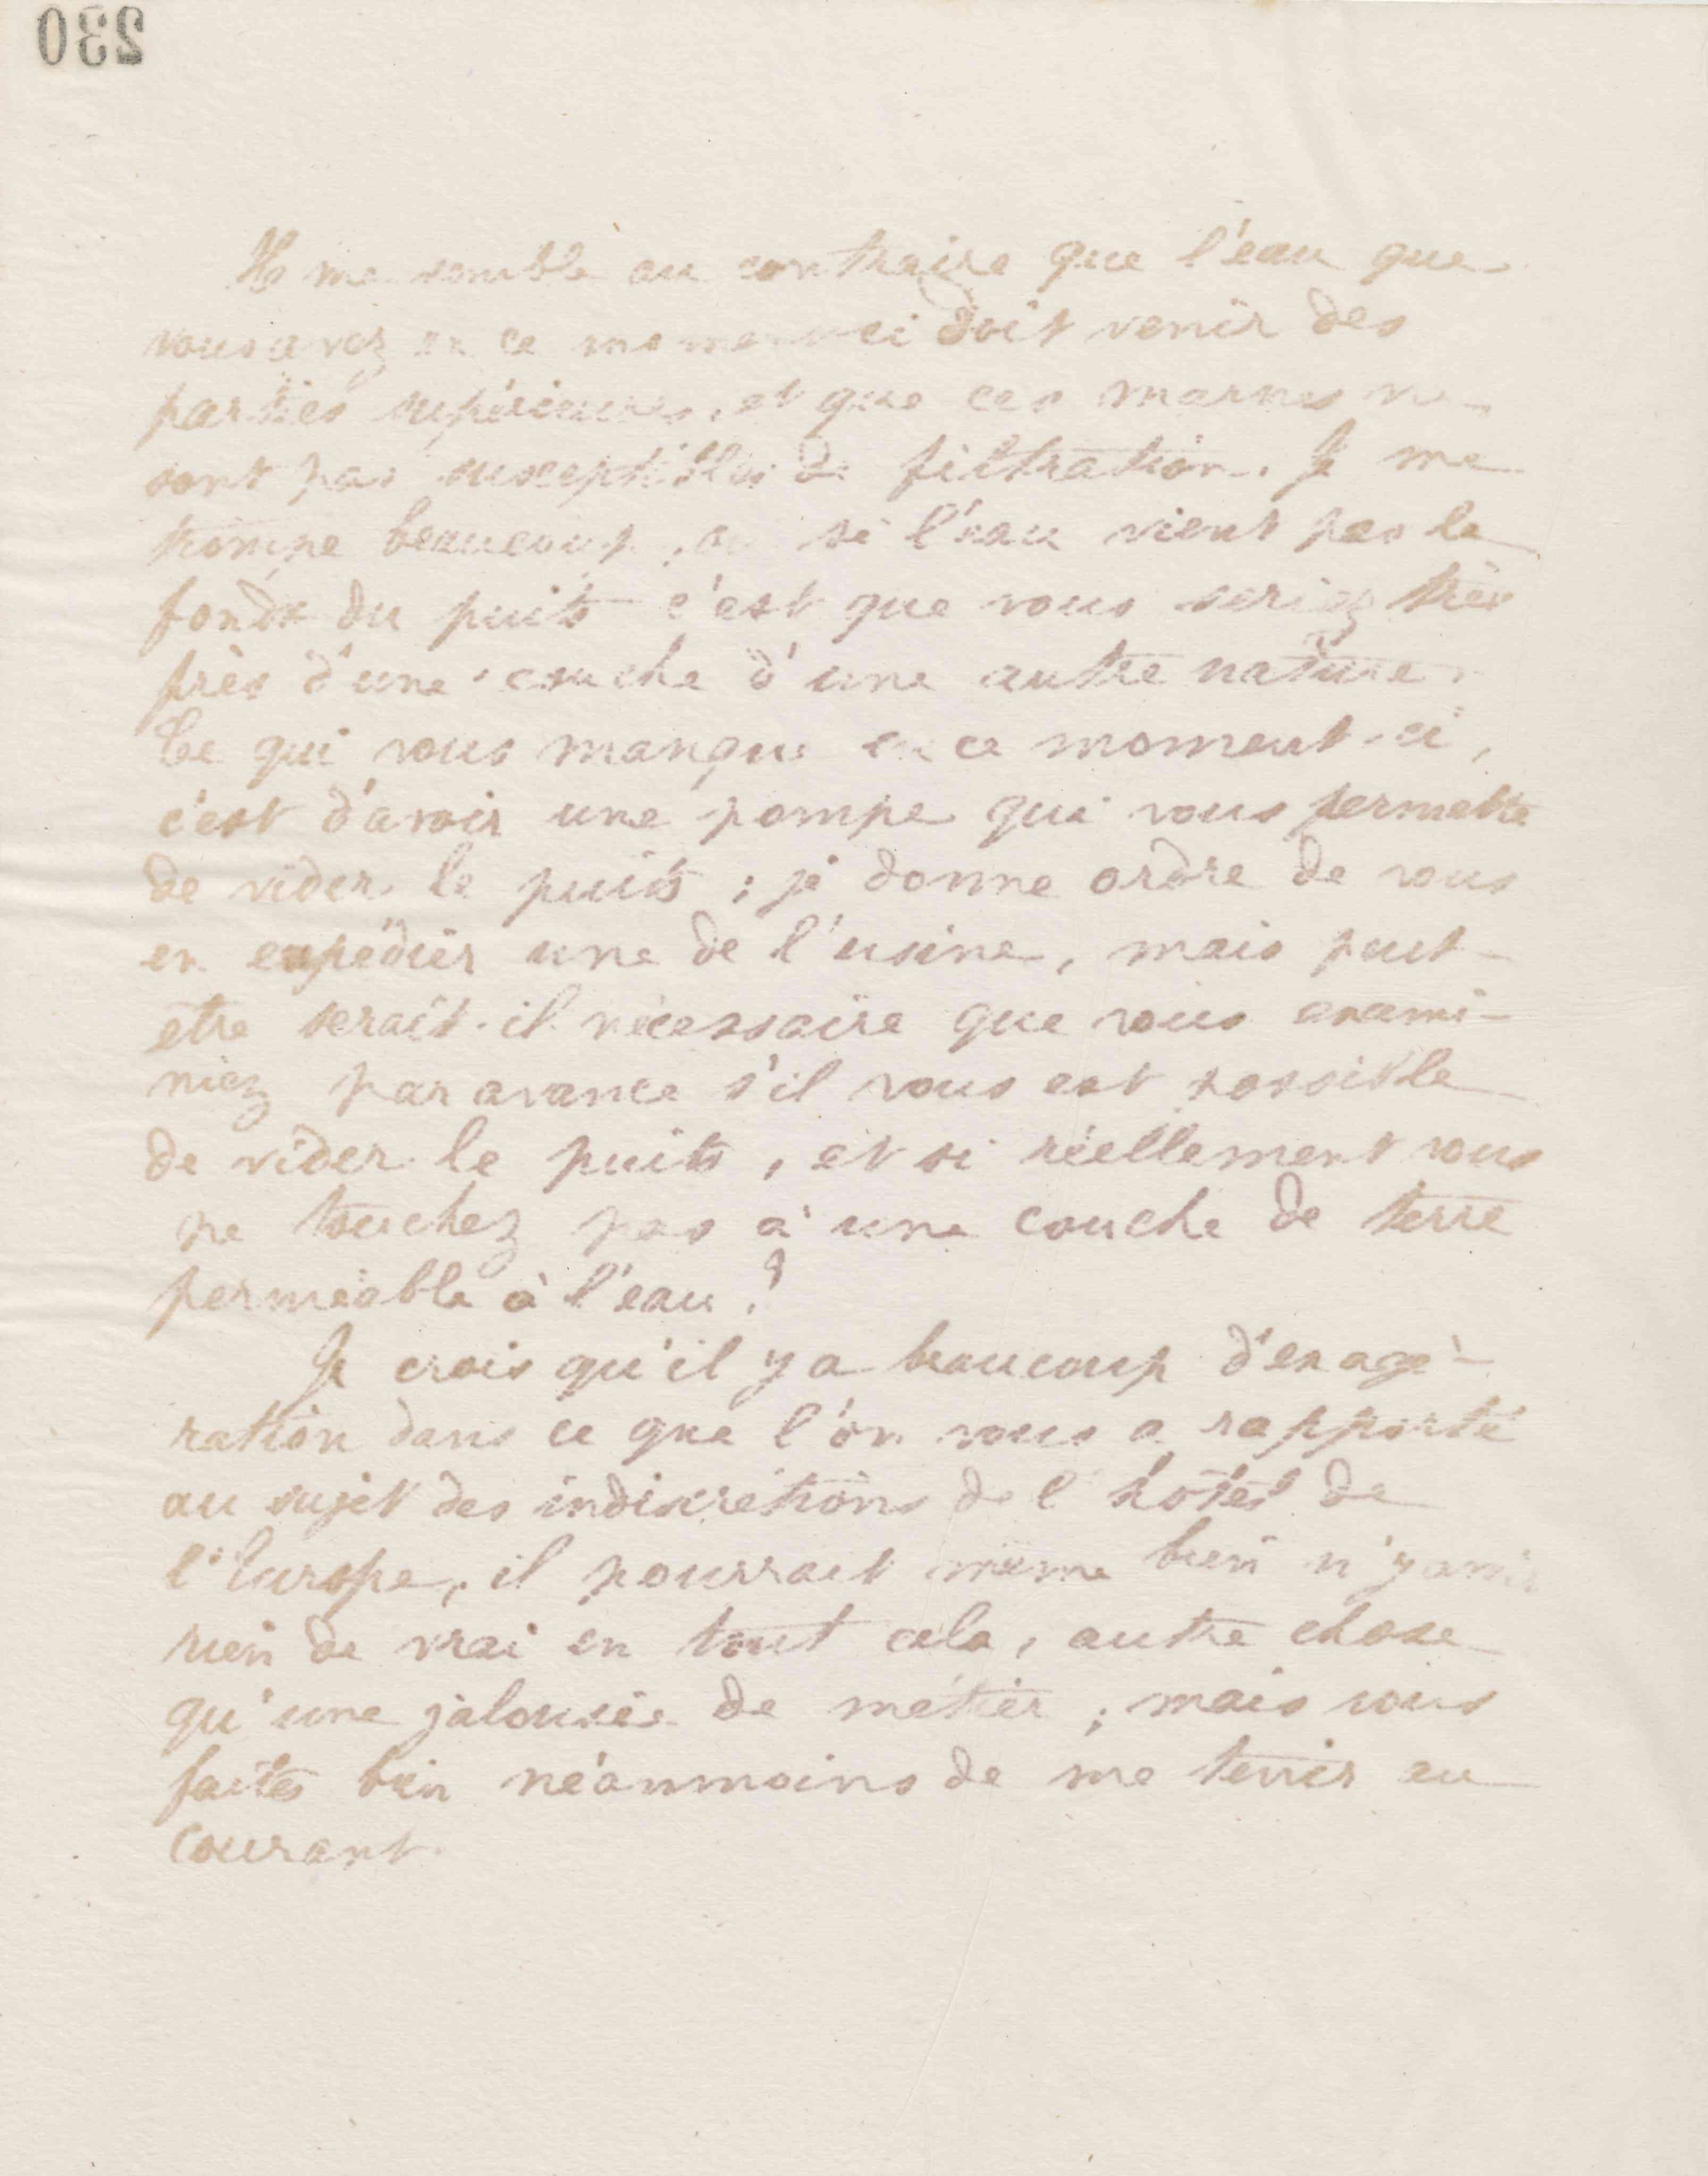 230
Il me semble au contraire que l'eau que
vous avez en ce moment-ci doit venir des
parties supérieures, et que ces marnes ne
sont pas susceptibles de filtration. Je me
trompe beaucoup, ou si l'eau vient par le
fonds du puits c'est que vous seriez très
près d'une couche d'une autre nature.
Ce qui vous manque en ce moment-ci,
c'est d'avoir une pompe qui vous permette
de vider le puits ; je donne ordre de vous
en expédier une de l'usine, mais peut-
etre serait-il nécessaire que vous exami-
niez par avance s'il vous est possible
de vider le puits, et si réellement vous
ne touchez pas à une couche de terre
perméable à l'eau ?
Je crois qu'il y a beaucoup d'exagé-
ration dans ce que l'on vous a rapporté
au sujet des indiscrétions de l'hôtel de
l'Europe, il pourrait même bien n'y avoir
rien de vrai en tout cela, autre chose
qu'une jalousie de métier ; mais vous
faites bien néanmoins de me tenir au
courant.